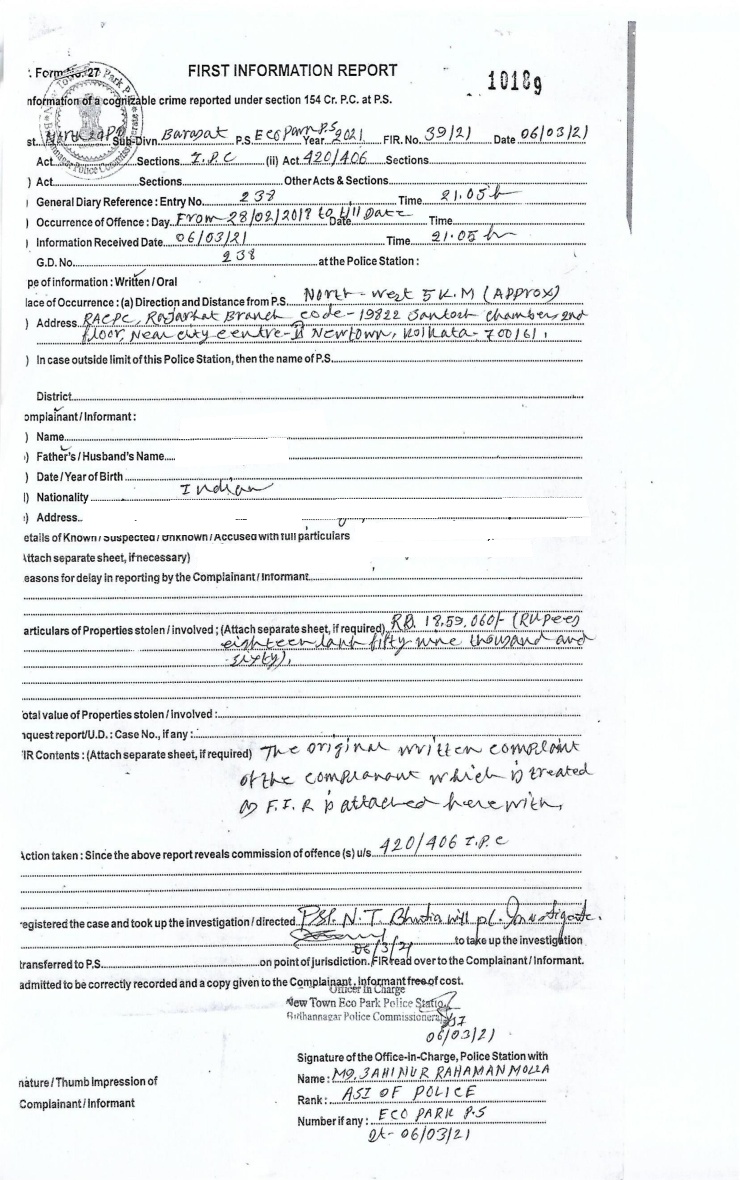 . Form No. 27
FIRST INFORMATION REPORT
10189
nformation of a cognizable crime reported under section 154 Cr. P.C. at P.S.
st. Sub-Divn. Barasat P.S. ECO Park P.S Year 2021 FIR. No. 39/21 Date 06/03/21
Act Sections. I.P.C (ii) Act 420/406 Sections
) Act Sections Other Acts & Sections
) General Diary Reference : Entry No. 238 Time 21.05 h
) Occurrence of Offence : Day. From 28/02/2018 to till Date Date Time
) Information Received Date 06/03/21 Time 21.05 hr
G.D. No. 238 at the Police Station :
pe of information : Written / Oral
lace of Occurrence : (a) Direction and Distance from P.S. North-West 5 K.M (Approx)
) Address RACPC, Rajarhat Branch code-19822 Santosh chambers 2nd
floor, Near city centre-II Newtown, Kolkata-700161.
) In case outside limit of this Police Station, then the name of P.S.
District
omplainant / Informant :
) Name
) Father's / Husband's Name
) Date / Year of Birth
l) Nationality Indian
) Address..
etails of Known / Suspected / Unknown / Accused with full particulars
Attach separate sheet, if necessary)
easons for delay in reporting by the Complainant / Informant
articulars of Properties stolen / involved ; (Attach separate sheet, if required) RS. 18,59,060/- (Rupees
eighteen lakh fifty nine thousand and
sixty).
otal value of Properties stolen / involved :
nquest report/U.D. : Case No., if any :
IR Contents : (Attach separate sheet, if required) The original written complaint
of the complanant which is treated
as F.I.R is attached herewith.
Action taken : Since the above report reveals commission of offence (s) u/s. 420/406 I.P.C
egistered the case and took up the investigation / directed PSI. N.T. Bhutia will pl. Investigate.
to take up the investigation
06/3/21
transferred to P.S. on point of jurisdiction. FIR read over to the Complainant / Informant.
admitted to be correctly recorded and a copy given to the Complainant, Informant free of cost.
Officer In Charge
New Town Eco Park Police Statio
Bidhannagar Police Commissionera
06/03/21
Signature of the Office-In-Charge, Police Station with
nature / Thumb Impression of
Name : MD. JAHINUR RAHAMAN MOLLA
Complainant / Informant
Rank : ASI OF POLICE
Number if any : ECO PARK P.S
Dt- 06/03/21